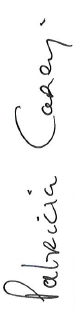 Patricia Carey.